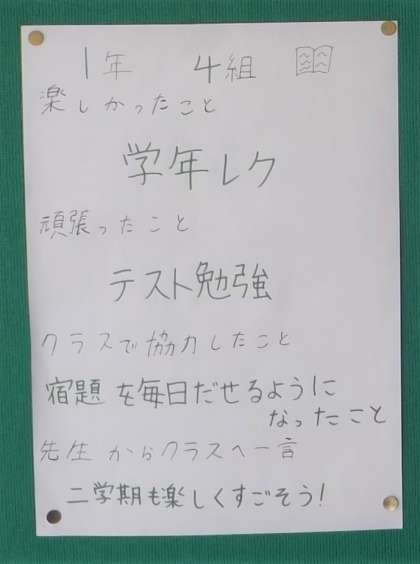 1年 4組
楽しかったこと
学年レク
頑張ったこと
テスト勉強
クラスで協力したこと
宿題を毎日だせるように
なったこと
先生からクラスへ一言
二学期も楽しくすごそう!